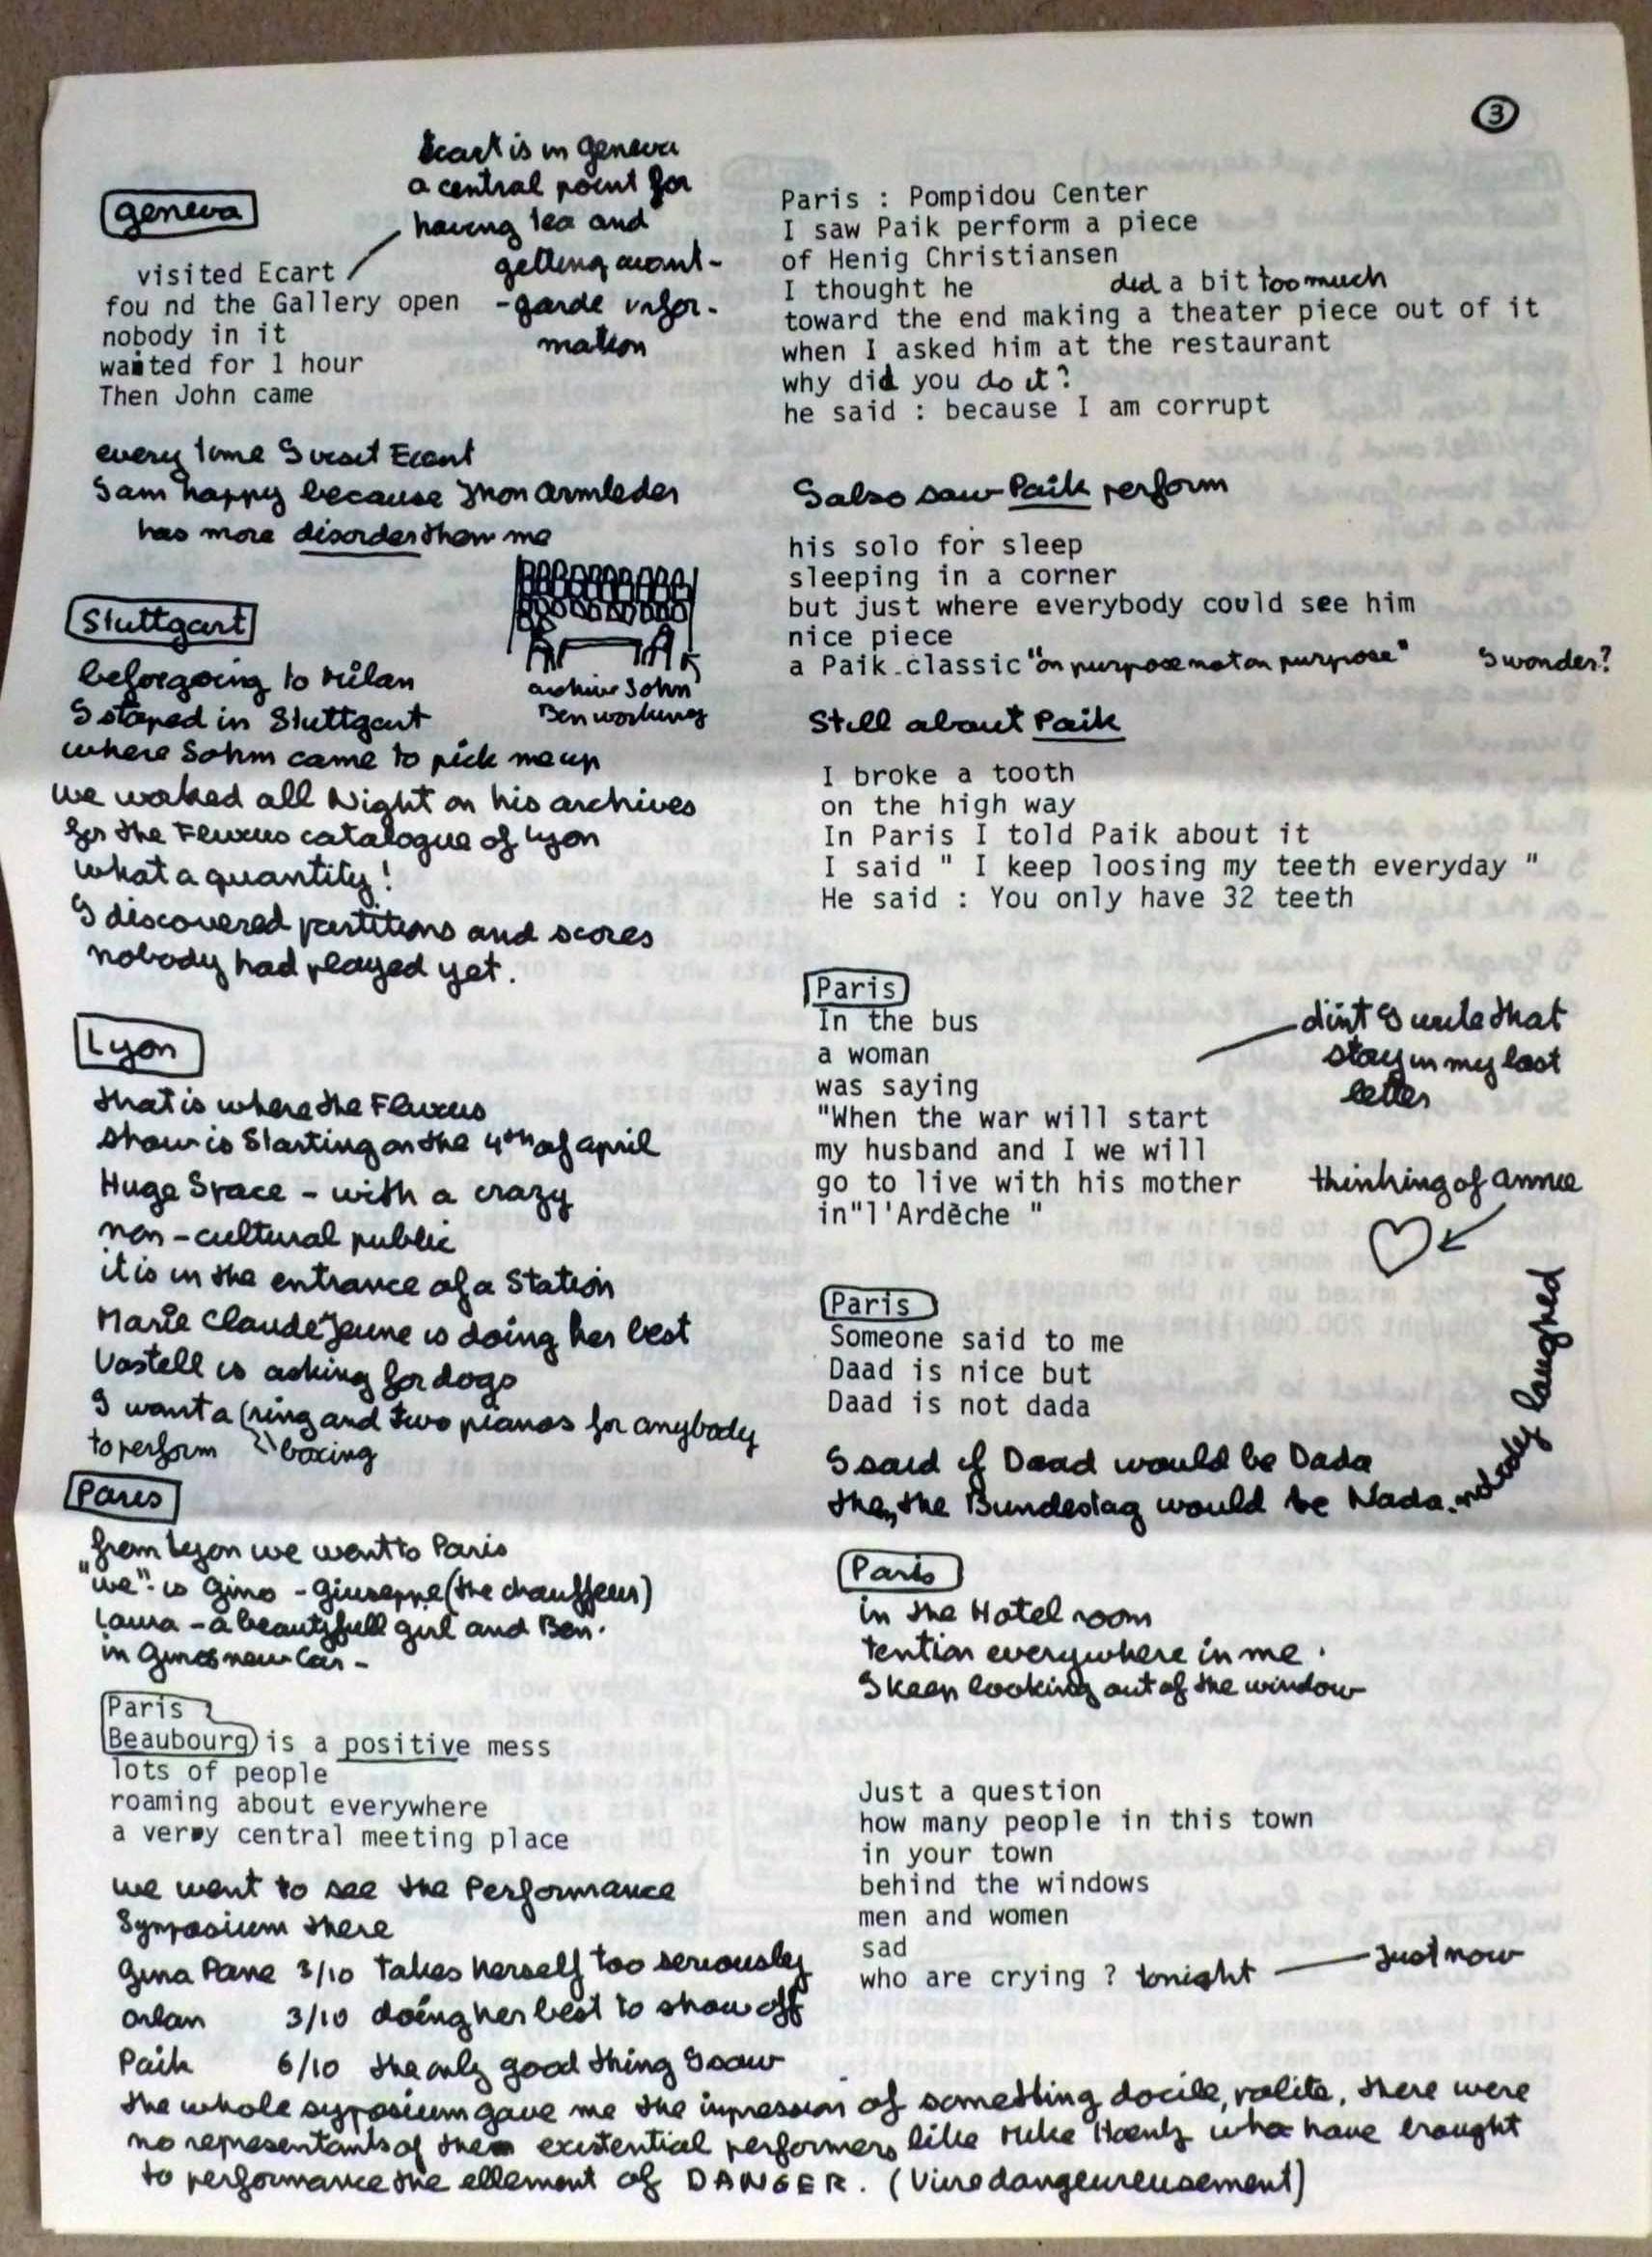 3
geneva
Ecart is in geneva
a central point for
having tea and
getting avant-
-garde infor-
mation
visited Ecart
fou nd the Gallery open
nobody in it
waited for 1 hour
Then John came
every time I visit Ecart
I am happy because Jhon Armleder
has more disorder then me
Stuttgart
archive Sohm
Ben working
before going to Milan
I stoped in Stuttgart
where Sohm came to pick me up
we worked all Night on his archives
for the Fluxus catalogue of Lyon
what a quantity!
I discovered partitions and scores
nobody had played yet.
Lyon
that is where the Fluxus
show is Starting on the 4th of april
Huge Space - with a crazy
non-cultural public
it is in the entrance of a Station
Marie Claude Jeune is doing her best
Vostell is asking for dogs
I want a (ring and two pianos for anybody
to perform boxing
Paris
from Lyon we went to Paris
"we" is Gino - Giuseppe (the chauffeur)
Laura - a beautyfull girl and Ben.
in Ginos new car -
Paris
Beaubourg is a positive mess
lots of people
roaming about everywhere
a very central meeting place
we went to see the Performance
Symposium there
Gina Pane 3/10 takes herself too seriously
Orlan 3/10 doing her best to show off
Paik 6/10 the only good thing I saw
the whole syposium gave me the impression of something docile, polite. there were
no representants of the existential performers like Mike Hentz who have brought
to performance the ellement of DANGER. (Vivre dangeureusement)
Paris : Pompidou Center
I saw Paik perform a piece
of Henig Christiansen
I thought he did a bit too much
toward the end making a theater piece out of it
when I asked him at the restaurant
why did you do it?
he said : because I am corrupt
I also saw Paik perform
his solo for sleep
sleeping in a corner
but just where everybody could see him
nice piece
a Paik classic "on purpose not on purpose" I wonder?
Still about Paik
I broke a tooth
on the high way
In Paris I told Paik about it
I said " I keep loosing my teeth everyday "
He said : You only have 32 teeth
Paris
In the bus
a woman
was saying
"When the war will start
my husband and I we will
go to live with his mother
in"l'Ardèche "
dint I write that
story in my last
letter
thinking of Annie
Paris
Someone said to me
Daad is nice but
Daad is not dada
I said if Daad would be Dada
then the Bundestag would be Nada. nobody laughed
Paris
in the Hotel room
tention everywhere in me.
I keep looking out of the window
Just a question
how many people in this town
in your town
behind the windows
men and women
sad
who are crying ? tonight — Just now